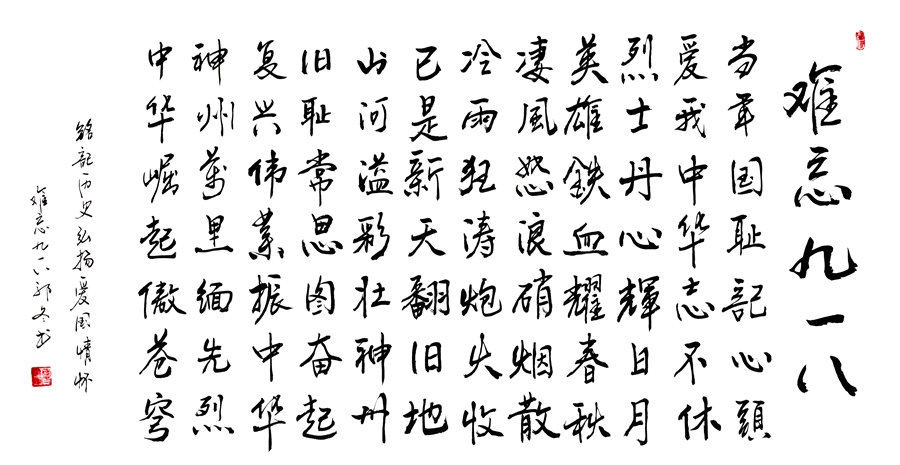 难忘九一八
当年国耻記心頭
爱我中华志不休
烈士丹心輝日月
英雄鉄血耀春秋
凄風怒浪硝烟散
冷雨狂涛炮火收
已是新天翻旧地
山河溢彩壮神州
旧耻常思图奋起
复兴伟業振中华
神州萬里缅先烈
中华崛起傲苍穹
銘記历史弘扬爱国情怀
难忘九一八郭冬书